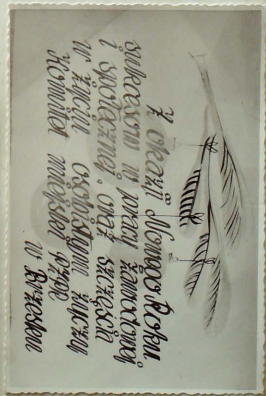 Z okazji Nowego Roku
sukcesów w pracy zawodowej
i społecznej oraz szczęścia
w życiu osobistym życzy
Komitet miejski PZPR
w Brzegu